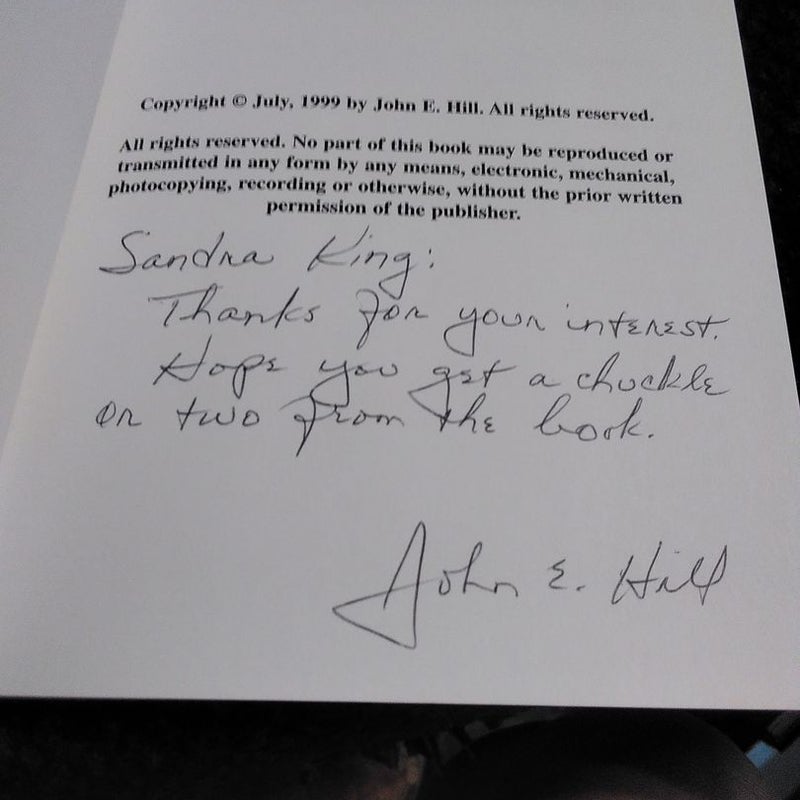 Copyright © July, 1999 by John E. Hill. All rights reserved.
All rights reserved. No part of this book may be reproduced or
transmitted in any form by any means, electronic, mechanical,
photocopying, recording or otherwise, without the prior written
permission of the publisher.
Sandra King:
Thanks for your interest.
Hope you get a chuckle
or two from the book.
John E. Hill